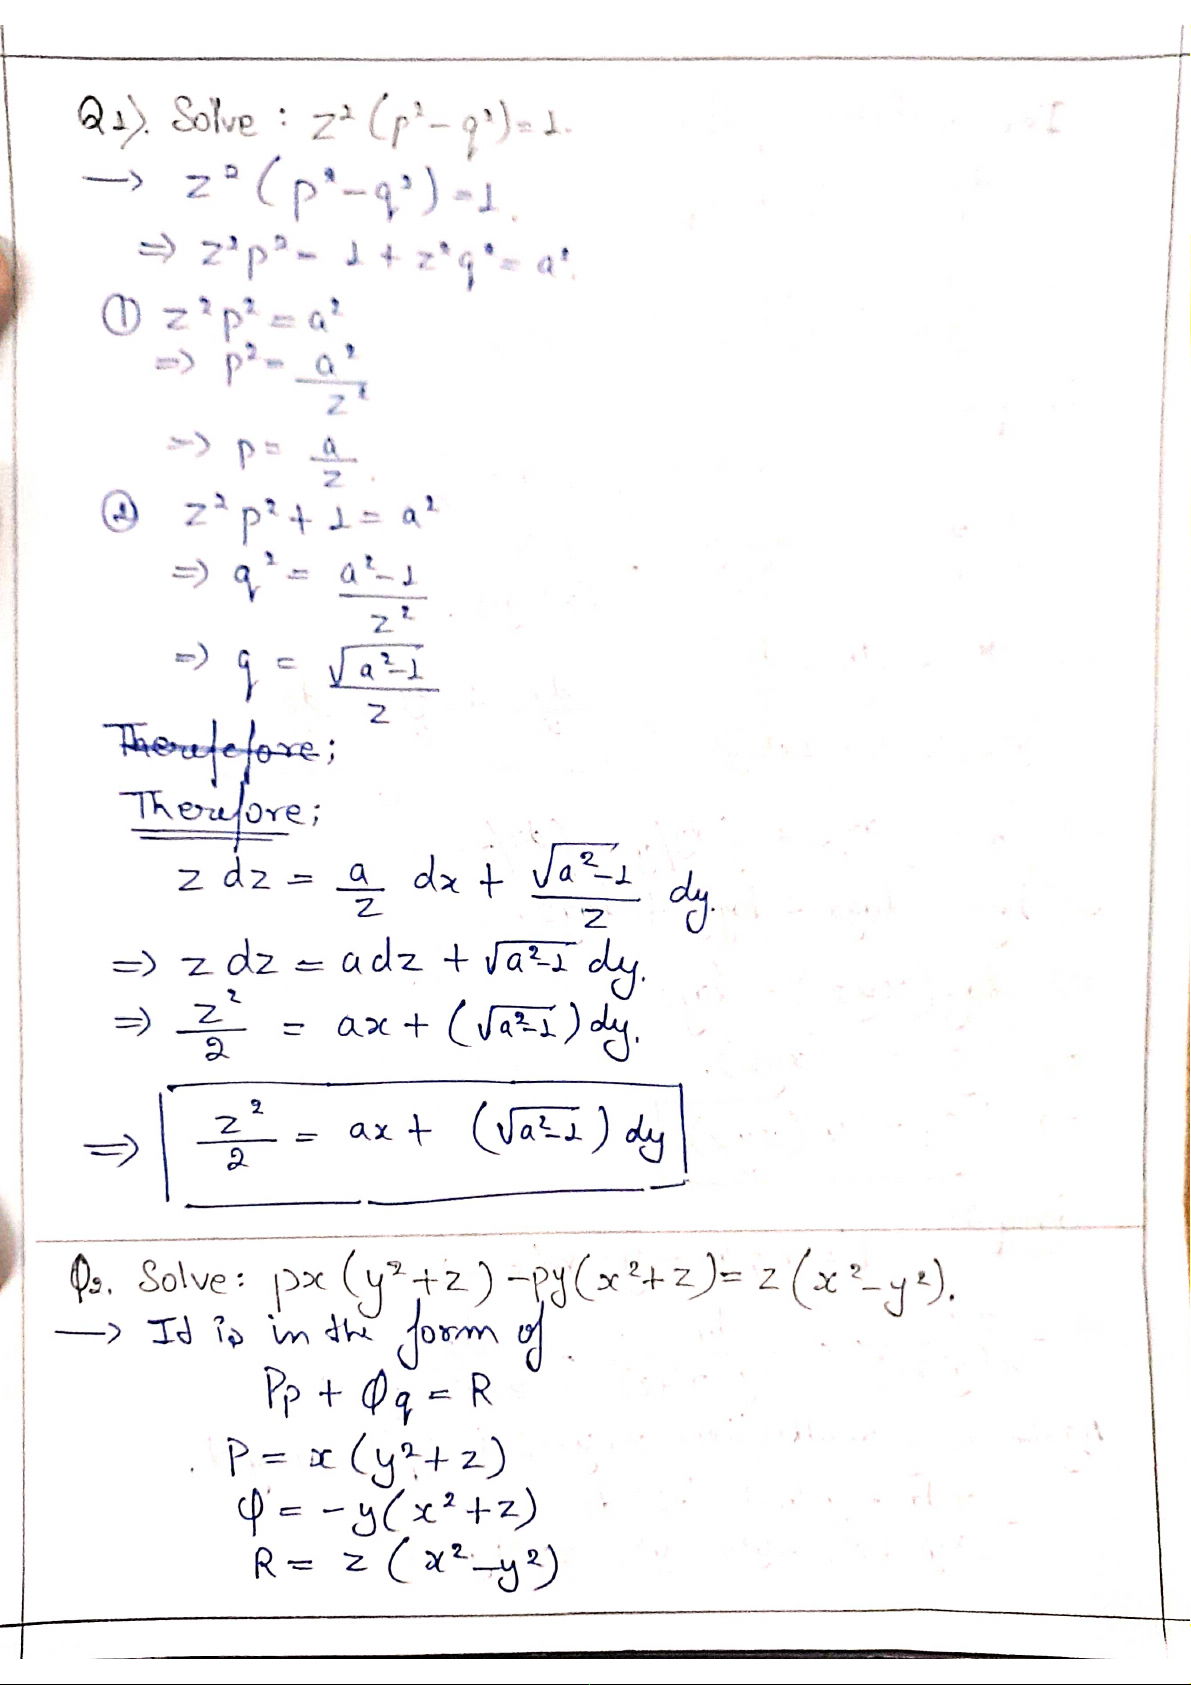 Q1). Solve : z² (p² - q²) = 1.
→ z² (p² - q²) = 1.
⇒ z²p² = 1 + z²q² = a².
① z²p² = a²
⇒ p² = a²/z²
⇒ p = a/z.
② z²p² + 1 = a²
⇒ q² = a²-1/z²
⇒ q = √a²-1/z
Therefefore;
Therefore;
z dz = a/z dx + √a²-1/z dy.
⇒ z dz = adz + √a²-1 dy.
⇒ z²/2 = ax + (√a²-1) dy.
⇒ z²/2 = ax + (√a²-1) dy
Q2. Solve: px (y²+z) - py (x²+z) = z (x²-y²).
→ It is in the form of.
Pp + Qq = R
P = x (y²+z)
Q = -y (x²+z)
R = z (x²-y²)